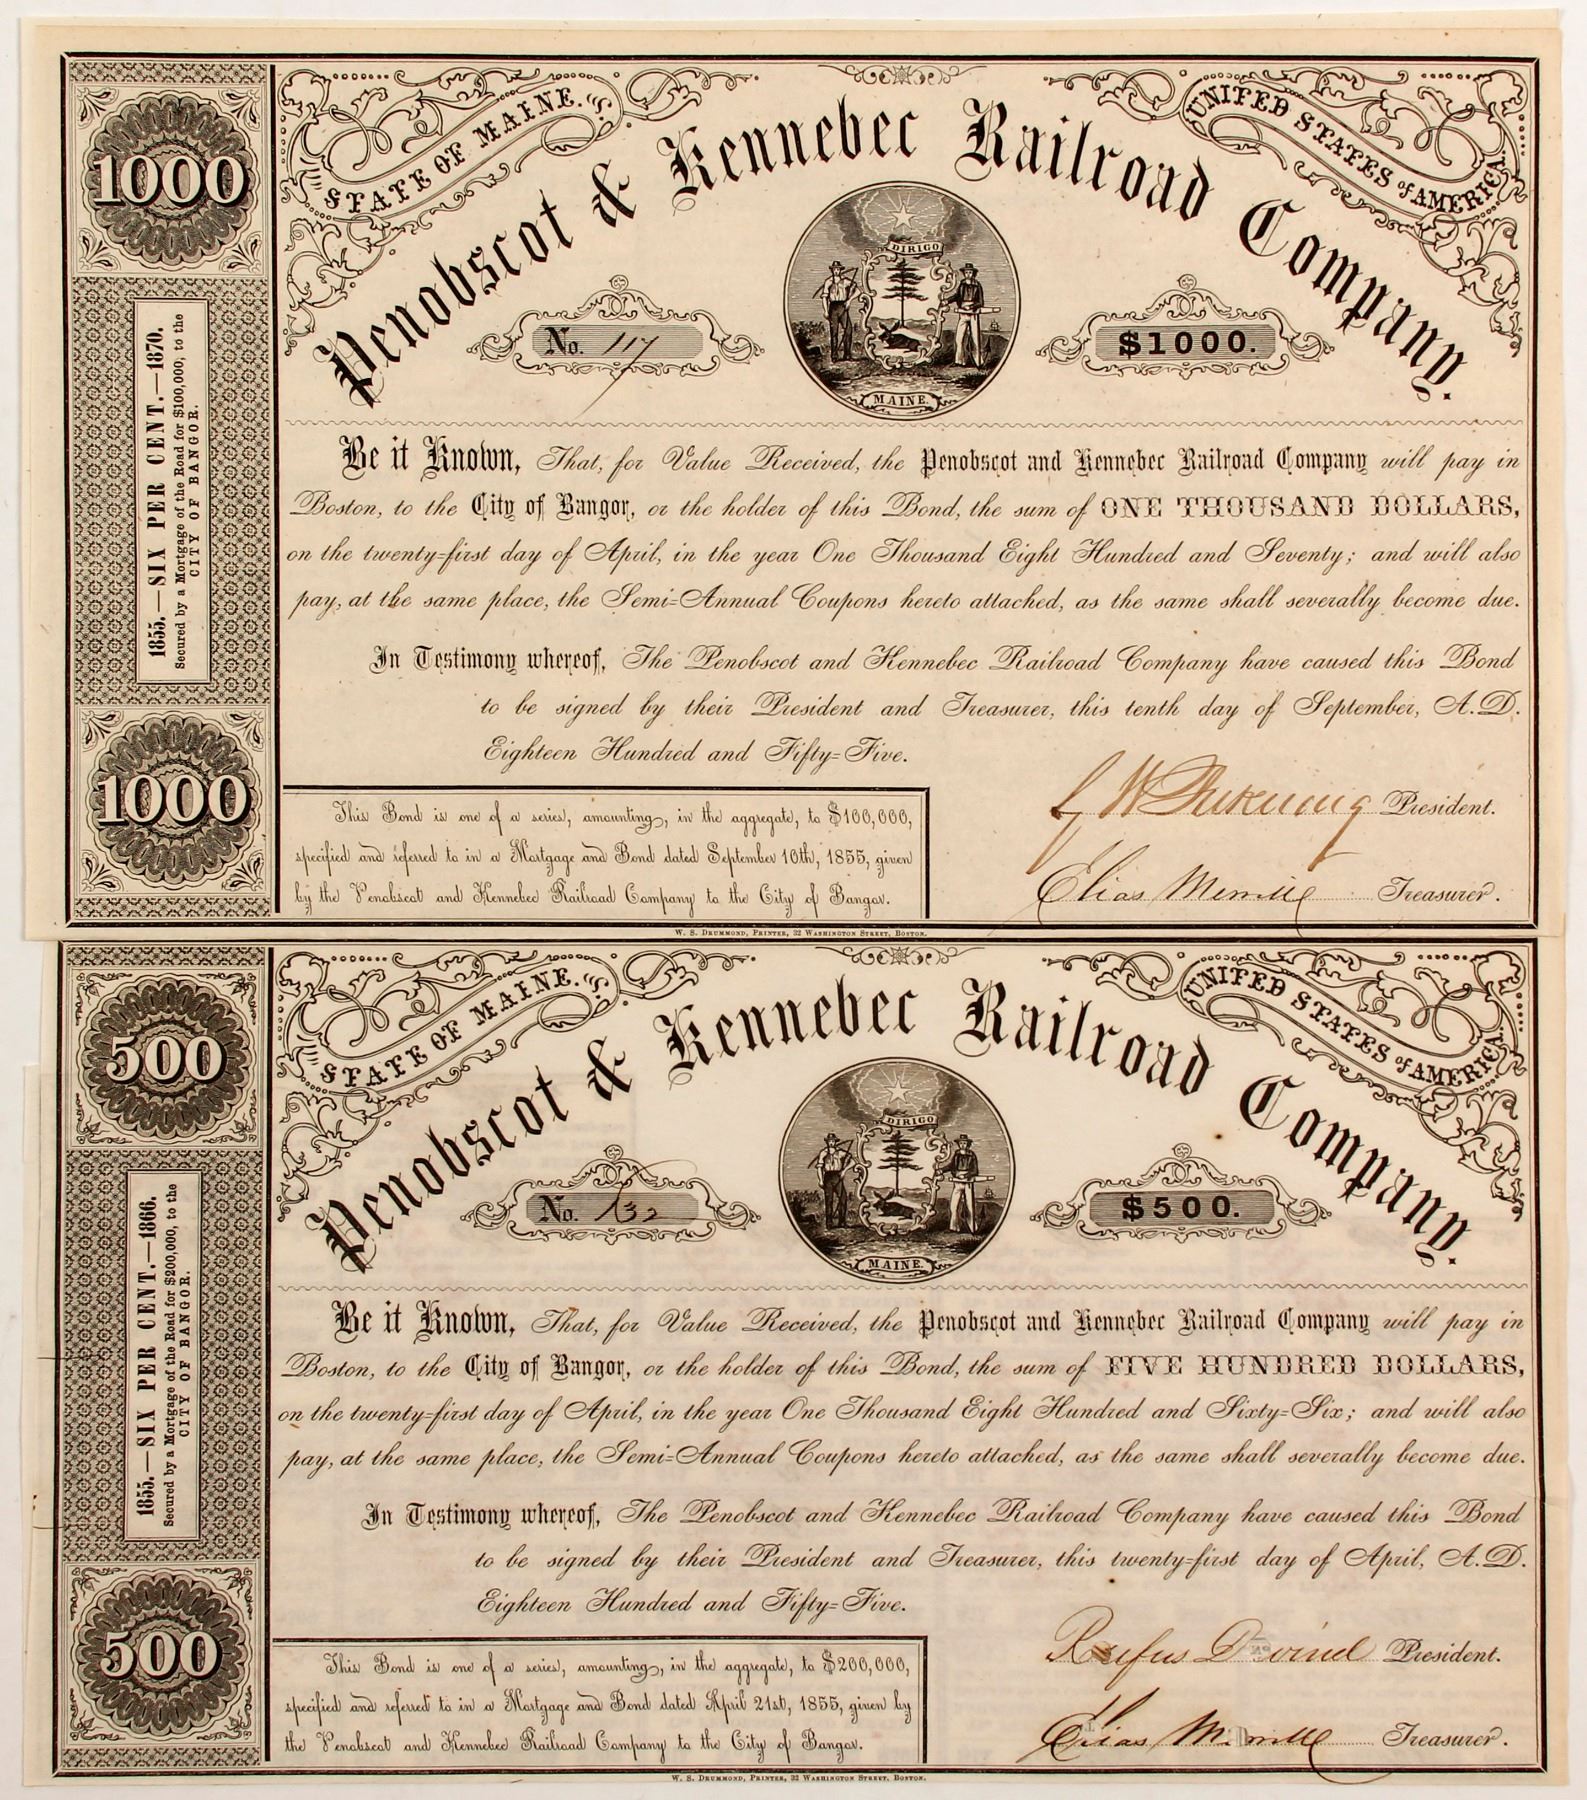 STATE OF MAINE.
UNITED STATES of AMERICA.
Penobscot & Kennebec Railroad Company.
1000
DIRIGO
No. 117
$1000.
MAINE.
1855.—SIX PER CENT.—1870.
Secured by a Mortgage of the Road for $100,000, to the
CITY OF BANGOR.
Be it Known, That, for Value Received, the Penobscot and Kennebec Railroad Company will pay in
Boston, to the City of Bangor, or the holder of this Bond, the sum of ONE THOUSAND DOLLARS,
on the twenty=first day of April, in the year One Thousand Eight Hundred and Seventy; and will also
pay, at the same place, the Semi=Annual Coupons hereto attached, as the same shall severally become due.
In Testimony whereof, The Penobscot and Kennebec Railroad Company have caused this Bond
to be signed by their President and Treasurer, this tenth day of September, A.D.
Eighteen Hundred and Fifty=Five.
1000
President.
This Bond is one of a series, amounting, in the aggregate, to $100,000,
specified and referred to in a Mortgage and Bond dated September 10th, 1855, given
by the Penobscot and Kennebec Railroad Company to the City of Bangor.
Elias Merrill Treasurer.
W. S. DRUMMOND, PRINTER, 32 WASHINGTON STREET, BOSTON.
STATE OF MAINE.
UNITED STATES of AMERICA.
Penobscot & Kennebec Railroad Company.
500
DIRIGO
No. 132
$500.
MAINE.
1855.—SIX PER CENT.—1866.
Secured by a Mortgage of the Road for $200,000, to the
CITY OF BANGOR.
Be it Known, That, for Value Received, the Penobscot and Kennebec Railroad Company will pay in
Boston, to the City of Bangor, or the holder of this Bond, the sum of FIVE HUNDRED DOLLARS,
on the twenty=first day of April, in the year One Thousand Eight Hundred and Sixty=Six; and will also
pay, at the same place, the Semi=Annual Coupons hereto attached, as the same shall severally become due.
In Testimony whereof, The Penobscot and Kennebec Railroad Company have caused this Bond
to be signed by their President and Treasurer, this twenty=first day of April, A.D.
Eighteen Hundred and Fifty=Five.
500
Rufus Dwinel President.
This Bond is one of a series, amounting, in the aggregate, to $200,000,
specified and referred to in a Mortgage and Bond dated April 21st, 1855, given by
the Penobscot and Kennebec Railroad Company to the City of Bangor.
Elias Merrill Treasurer.
W. S. DRUMMOND, PRINTER, 32 WASHINGTON STREET, BOSTON.